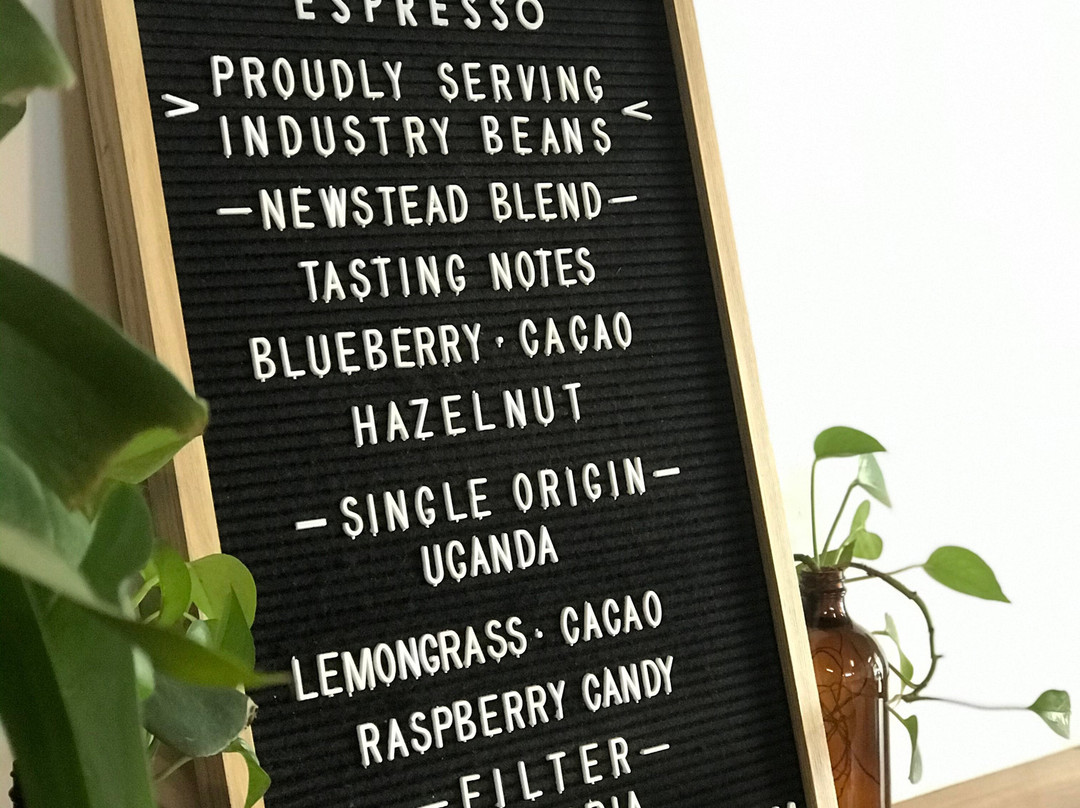 ESPRESSO
> PROUDLY SERVING <
INDUSTRY BEANS
—NEWSTEAD BLEND—
TASTING NOTES
BLUEBERRY · CACAO
HAZELNUT
—SINGLE ORIGIN—
UGANDA
LEMONGRASS · CACAO
RASPBERRY CANDY
—FILTER—